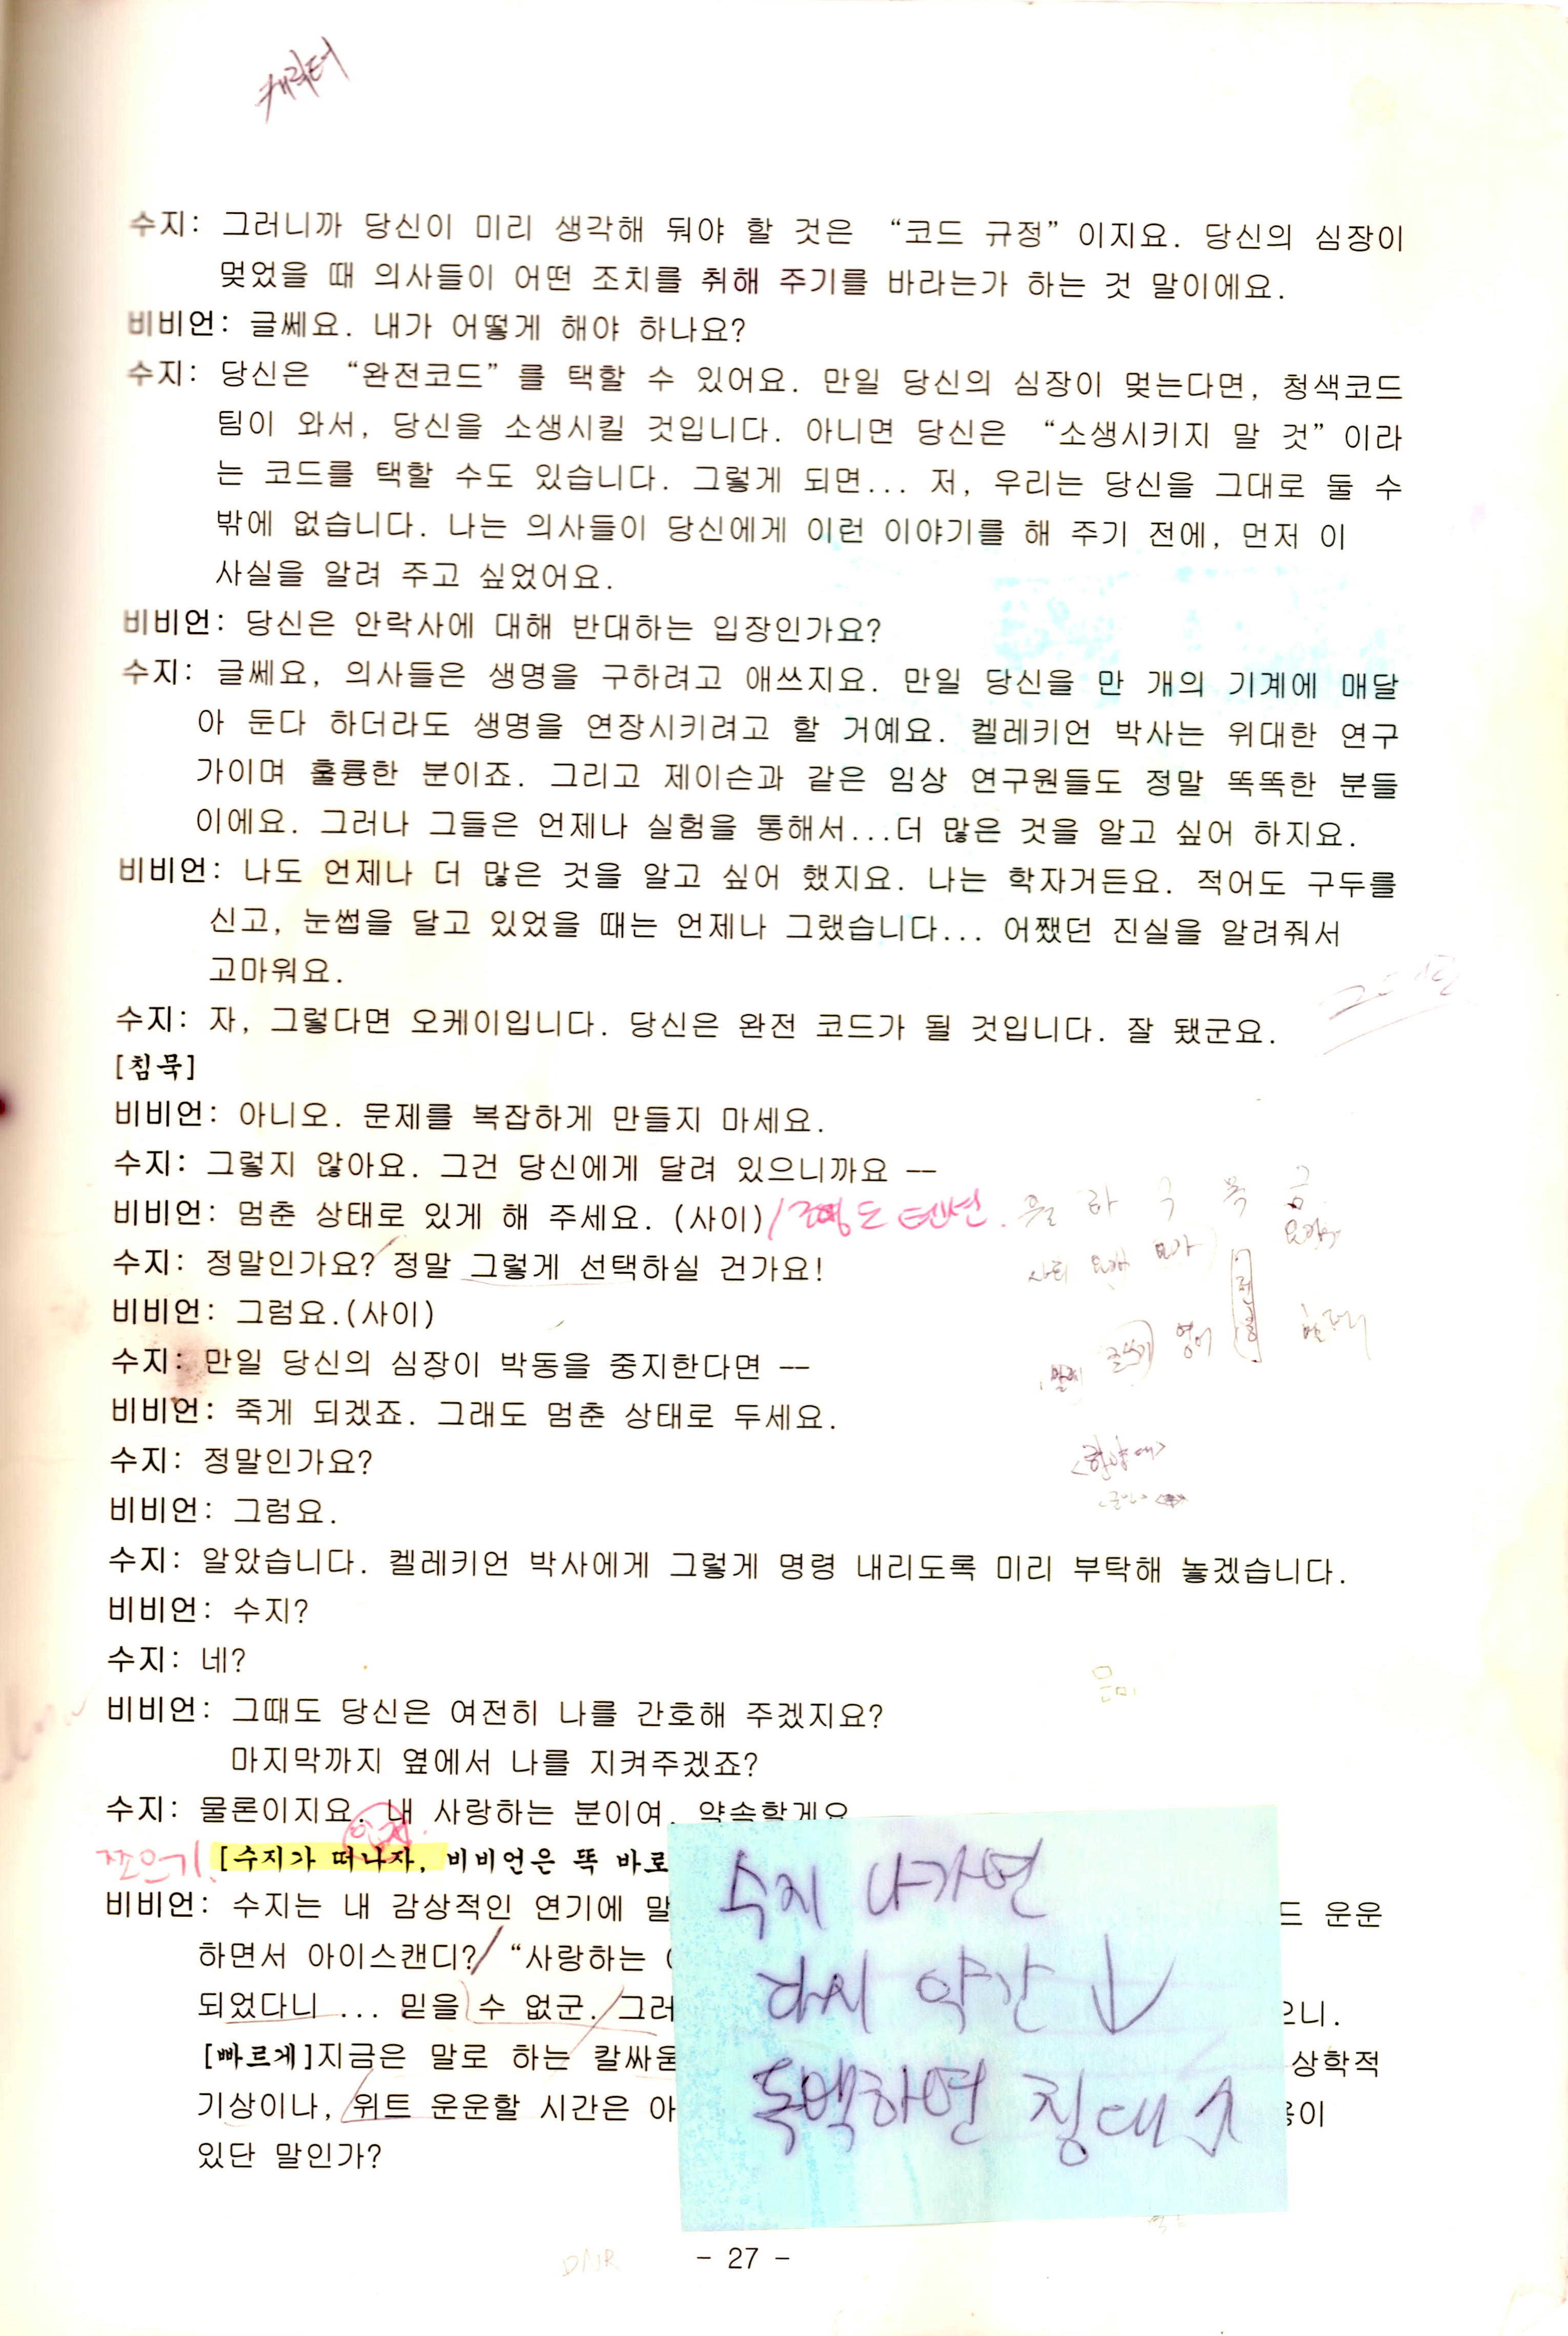 캐릭터
수지: 그러니까 당신이 미리 생각해 둬야 할 것은 “코드 규정” 이지요. 당신의 심장이
멎었을 때 의사들이 어떤 조치를 취해 주기를 바라는가 하는 것 말이에요.
비비언: 글쎄요. 내가 어떻게 해야 하나요?
수지: 당신은 “완전코드” 를 택할 수 있어요. 만일 당신의 심장이 멎는다면, 청색코드
팀이 와서, 당신을 소생시킬 것입니다. 아니면 당신은 “소생시키지 말 것” 이라
는 코드를 택할 수도 있습니다. 그렇게 되면... 저, 우리는 당신을 그대로 둘 수
밖에 없습니다. 나는 의사들이 당신에게 이런 이야기를 해 주기 전에, 먼저 이
사실을 알려 주고 싶었어요.
비비언: 당신은 안락사에 대해 반대하는 입장인가요?
수지: 글쎄요, 의사들은 생명을 구하려고 애쓰지요. 만일 당신을 만 개의 기계에 매달
아 둔다 하더라도 생명을 연장시키려고 할 거예요. 켈레키언 박사는 위대한 연구
가이며 훌륭한 분이죠. 그리고 제이슨과 같은 임상 연구원들도 정말 똑똑한 분들
이에요. 그러나 그들은 언제나 실험을 통해서...더 많은 것을 알고 싶어 하지요.
비비언: 나도 언제나 더 많은 것을 알고 싶어 했지요. 나는 학자거든요. 적어도 구두를
신고, 눈썹을 달고 있었을 때는 언제나 그랬습니다... 어쨌던 진실을 알려줘서
고마워요.
수지: 자, 그렇다면 오케이입니다. 당신은 완전 코드가 될 것입니다. 잘 됐군요.
[침묵]
비비언: 아니오. 문제를 복잡하게 만들지 마세요.
수지: 그렇지 않아요. 그건 당신에게 달려 있으니까요 ——
비비언: 멈춘 상태로 있게 해 주세요. (사이) / 텐션. 월 화 수 목 금
수지: 정말인가요? 정말 그렇게 선택하실 건가요!
비비언: 그럼요.(사이)
수지: 만일 당신의 심장이 박동을 중지한다면 ——
영어
비비언: 죽게 되겠죠. 그래도 멈춘 상태로 두세요.
수지: 정말인가요?
비비언: 그럼요.
수지: 알았습니다. 켈레키언 박사에게 그렇게 명령 내리도록 미리 부탁해 놓겠습니다.
비비언: 수지?
수지: 네?
비비언: 그때도 당신은 여전히 나를 간호해 주겠지요?
마지막까지 옆에서 나를 지켜주겠죠?
수지: 물론이지요. 내 사랑하는 분이여. 약속할게요
[수지가 떠나자, 비비언은 똑 바로
비비언: 수지는 내 감상적인 연기에 말 드 운운
하면서 아이스캔디? “사랑하는
되었다니 ... 믿을 수 없군. 그러 으니.
[빠르게]지금은 말로 하는 칼싸움 상학적
기상이나, 위트 운운할 시간은 아
있단 말인가?
수지 나가면
다시 약간 ↓
독백하면 침대 ↑
DNR
- 27 -